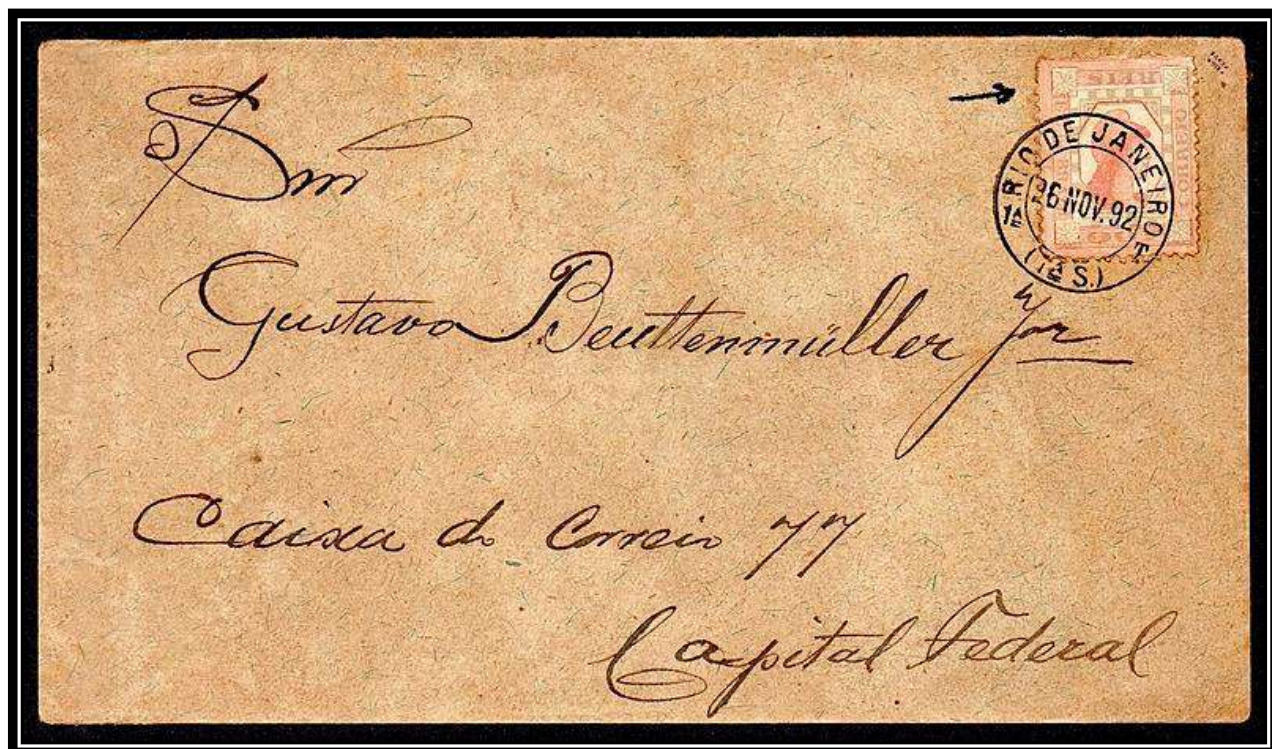 Snr
Gustavo Beuttenmüller Jor
Caixa do Correio 77
Capital Federal
RIO DE JANEIRO
26 NOV. 92
1ª T
(1ª S.)
CORREIO
REIS